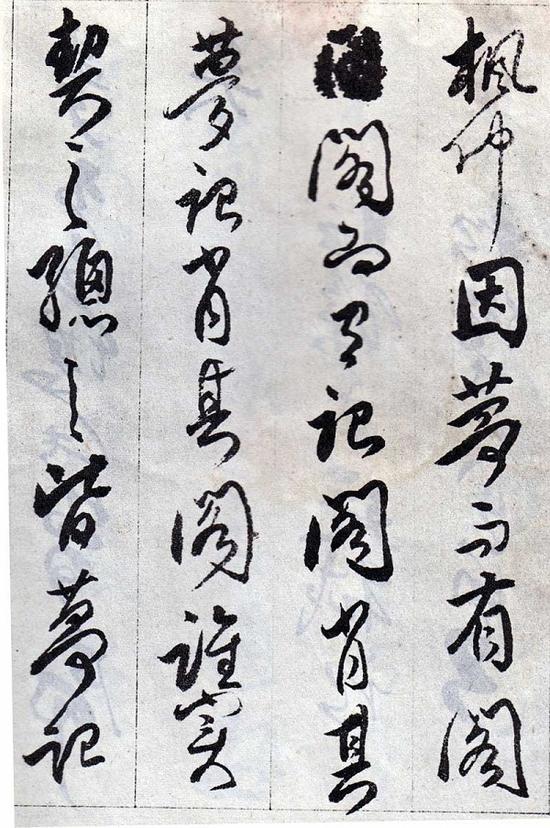 楓仲因夢而有閣
閣而有記閣肖其
夢記肖其閣誰實
契之總之皆夢記